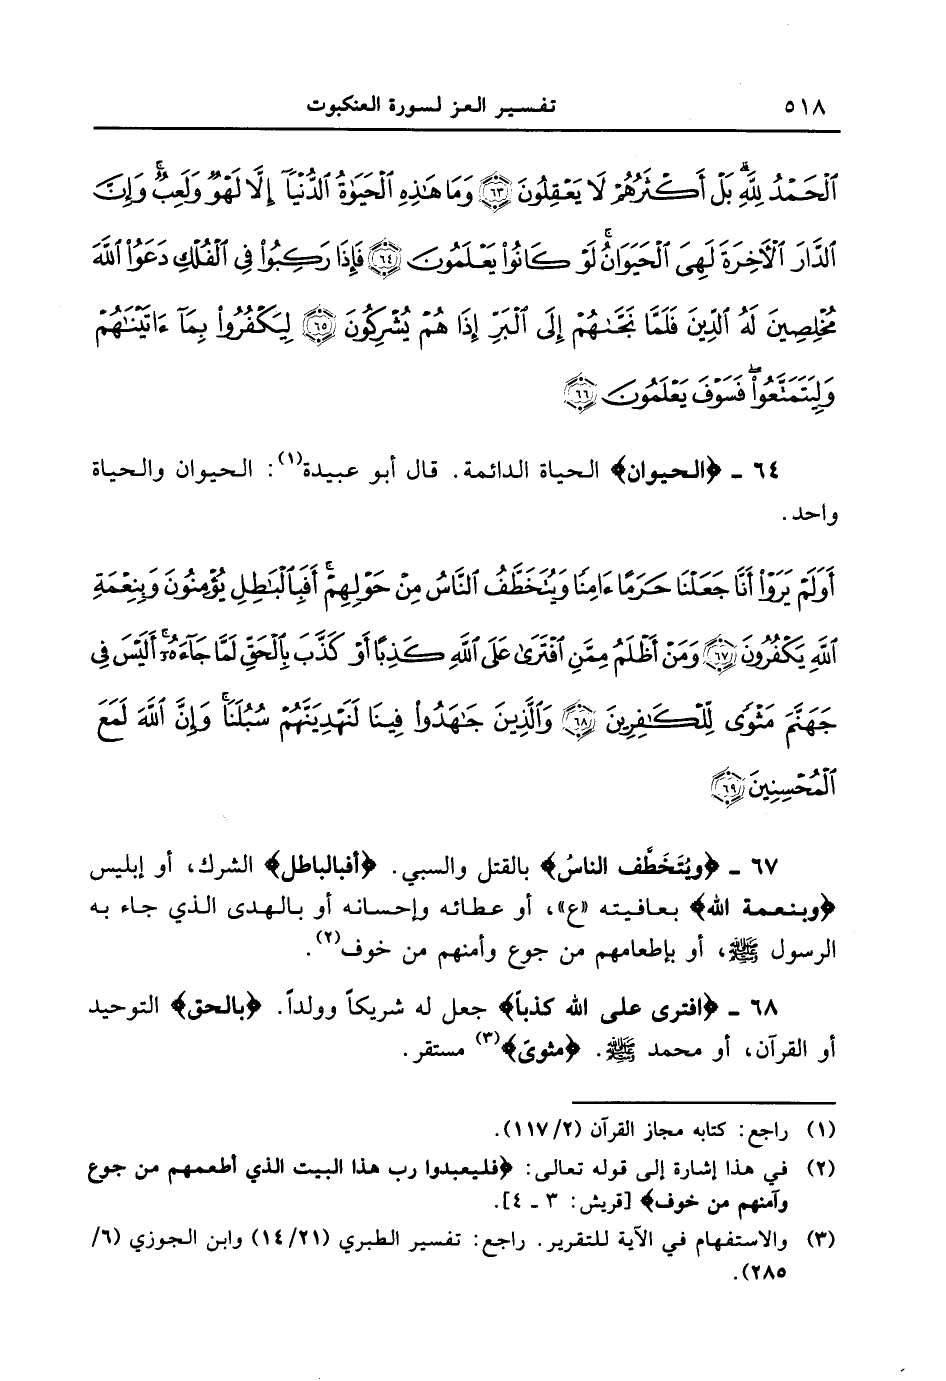 ٥١٨ تفسير العز لسورة العنكبوت
ٱلْحَمْدُ لِلَّهِ بَلْ أَكْثَرُهُمْ لَا يَعْقِلُونَ ﴿٦٣﴾ وَمَا هَٰذِهِ ٱلْحَيَوٰةُ ٱلدُّنْيَآ إِلَّا لَهْوٌ وَلَعِبٌ ۚ وَإِنَّ
ٱلدَّارَ ٱلْآخِرَةَ لَهِىَ ٱلْحَيَوَانُ ۚ لَوْ كَانُوا۟ يَعْلَمُونَ ﴿٦٤﴾ فَإِذَا رَكِبُوا۟ فِى ٱلْفُلْكِ دَعَوُا۟ ٱللَّهَ
مُخْلِصِينَ لَهُ ٱلدِّينَ فَلَمَّا نَجَّىٰهُمْ إِلَى ٱلْبَرِّ إِذَا هُمْ يُشْرِكُونَ ﴿٦٥﴾ لِيَكْفُرُوا۟ بِمَآ ءَاتَيْنَٰهُمْ
وَلِيَتَمَتَّعُوا۟ ۖ فَسَوْفَ يَعْلَمُونَ ﴿٦٦﴾
٦٤ ـ ﴿الحيوان﴾ الحياة الدائمة. قال أبو عبيدة(١): الحيوان والحياة
واحد.
أَوَلَمْ يَرَوْا۟ أَنَّا جَعَلْنَا حَرَمًا ءَامِنًا وَيُتَخَطَّفُ ٱلنَّاسُ مِنْ حَوْلِهِمْ ۚ أَفَبِٱلْبَٰطِلِ يُؤْمِنُونَ وَبِنِعْمَةِ
ٱللَّهِ يَكْفُرُونَ ﴿٦٧﴾ وَمَنْ أَظْلَمُ مِمَّنِ ٱفْتَرَىٰ عَلَى ٱللَّهِ كَذِبًا أَوْ كَذَّبَ بِٱلْحَقِّ لَمَّا جَآءَهُۥٓ ۚ أَلَيْسَ فِى
جَهَنَّمَ مَثْوًى لِّلْكَٰفِرِينَ ﴿٦٨﴾ وَٱلَّذِينَ جَٰهَدُوا۟ فِينَا لَنَهْدِيَنَّهُمْ سُبُلَنَا ۚ وَإِنَّ ٱللَّهَ لَمَعَ
ٱلْمُحْسِنِينَ ﴿٦٩﴾
٦٧ ـ ﴿ويُتَخَطَّف الناسُ﴾ بالقتل والسبي. ﴿أفبالباطل﴾ الشرك، أو إبليس
﴿وبنعمة الله﴾ بعافيته «ع»، أو عطائه وإحسانه أو بالهدى الذي جاء به
الرسول ﷺ، أو بإطعامهم من جوع وأمنهم من خوف(٢).
٦٨ ـ ﴿افترى على الله كذباً﴾ جعل له شريكاً وولداً. ﴿بالحق﴾ التوحيد
أو القرآن، أو محمد ﷺ. ﴿مثوىً﴾(٣) مستقر.
(١) راجع: كتابه مجاز القرآن (١١٧/٢).
(٢) في هذا إشارة إلى قوله تعالى: ﴿فليعبدوا رب هذا البيت الذي أطعمهم من جوع
وآمنهم من خوف﴾ [قريش: ٣ ـ ٤].
(٣) والاستفهام في الآية للتقرير. راجع: تفسير الطبري (١٤/٢١) وابن الجوزي (٦/
٢٨٥).